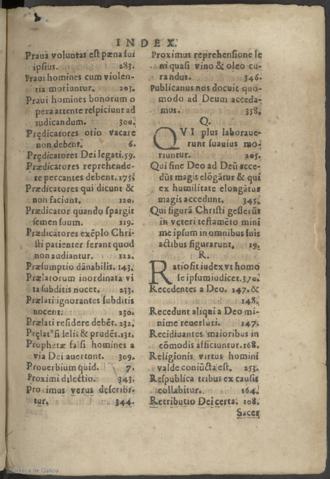 INDEX.
Praua voluntas est pœna sui
ipsius. 283.
Praui homines cum violen-
tia moriuntur. 203.
Praui homines bonorum o
pera attente respiciunt ad
iudicandum. 300.
Prędicatores otio vacare
non debent. 6.
Prędicatores Dei legati. 59.
Prædicatores reprehende-
re peccantes debent. 175.
Prædicatores qui dicunt &
non faciunt. 120.
Prædicator quando spargit
semen suum. 119.
Prædicatores exẽplo Chri-
sti patienter ferant quod
non audiantur. 112.
Præsumptio dãnabilis. 143.
Prælatorum inordinata vi
ta subditis nocet. 233.
Prælati ignorantes subditis
nocent. 230.
Prælati residere debẽt. 232.
Prophetæ falsi homines a
via Dei auertont. 309.
Prouerbium quid. 7.
Proximi dilectio. 343.
Proximus verus describi-
tur. 344.
Proximus reprehensione le
ni quasi vino & oleo cu-
randus. 346.
Publicanus nos docuit quo-
modo ad Deum acceda-
mus. 338.
Q.
QVI plus laboraue-
runt suauius mo-
riuntur. 205.
Qui sine Deo ad Deũ acce-
dũt magis elõgãtur & qui
ex humilitate elongãtur
magis accedunt. 345.
Qui figurã Christi gesserũt
in veteri testamẽto mini
me ipsum in omnibus suis
actibus figurarunt. 19.
R.
Ratio sit iudex vt homo
se ipsum iudicet. 370.
Recedentes a Deo. 147. &
148.
Recedunt aliqui a Deo mi-
nime reuerluri. 147.
Recidiuantes maioribus in
cõmodis afficiuntur. 168.
Religionis virtus homini
valde coniũcta est. 253.
Respublica tribus ex causis
collabitur. 164.
Retributio Dei certa. 108.
Sacer